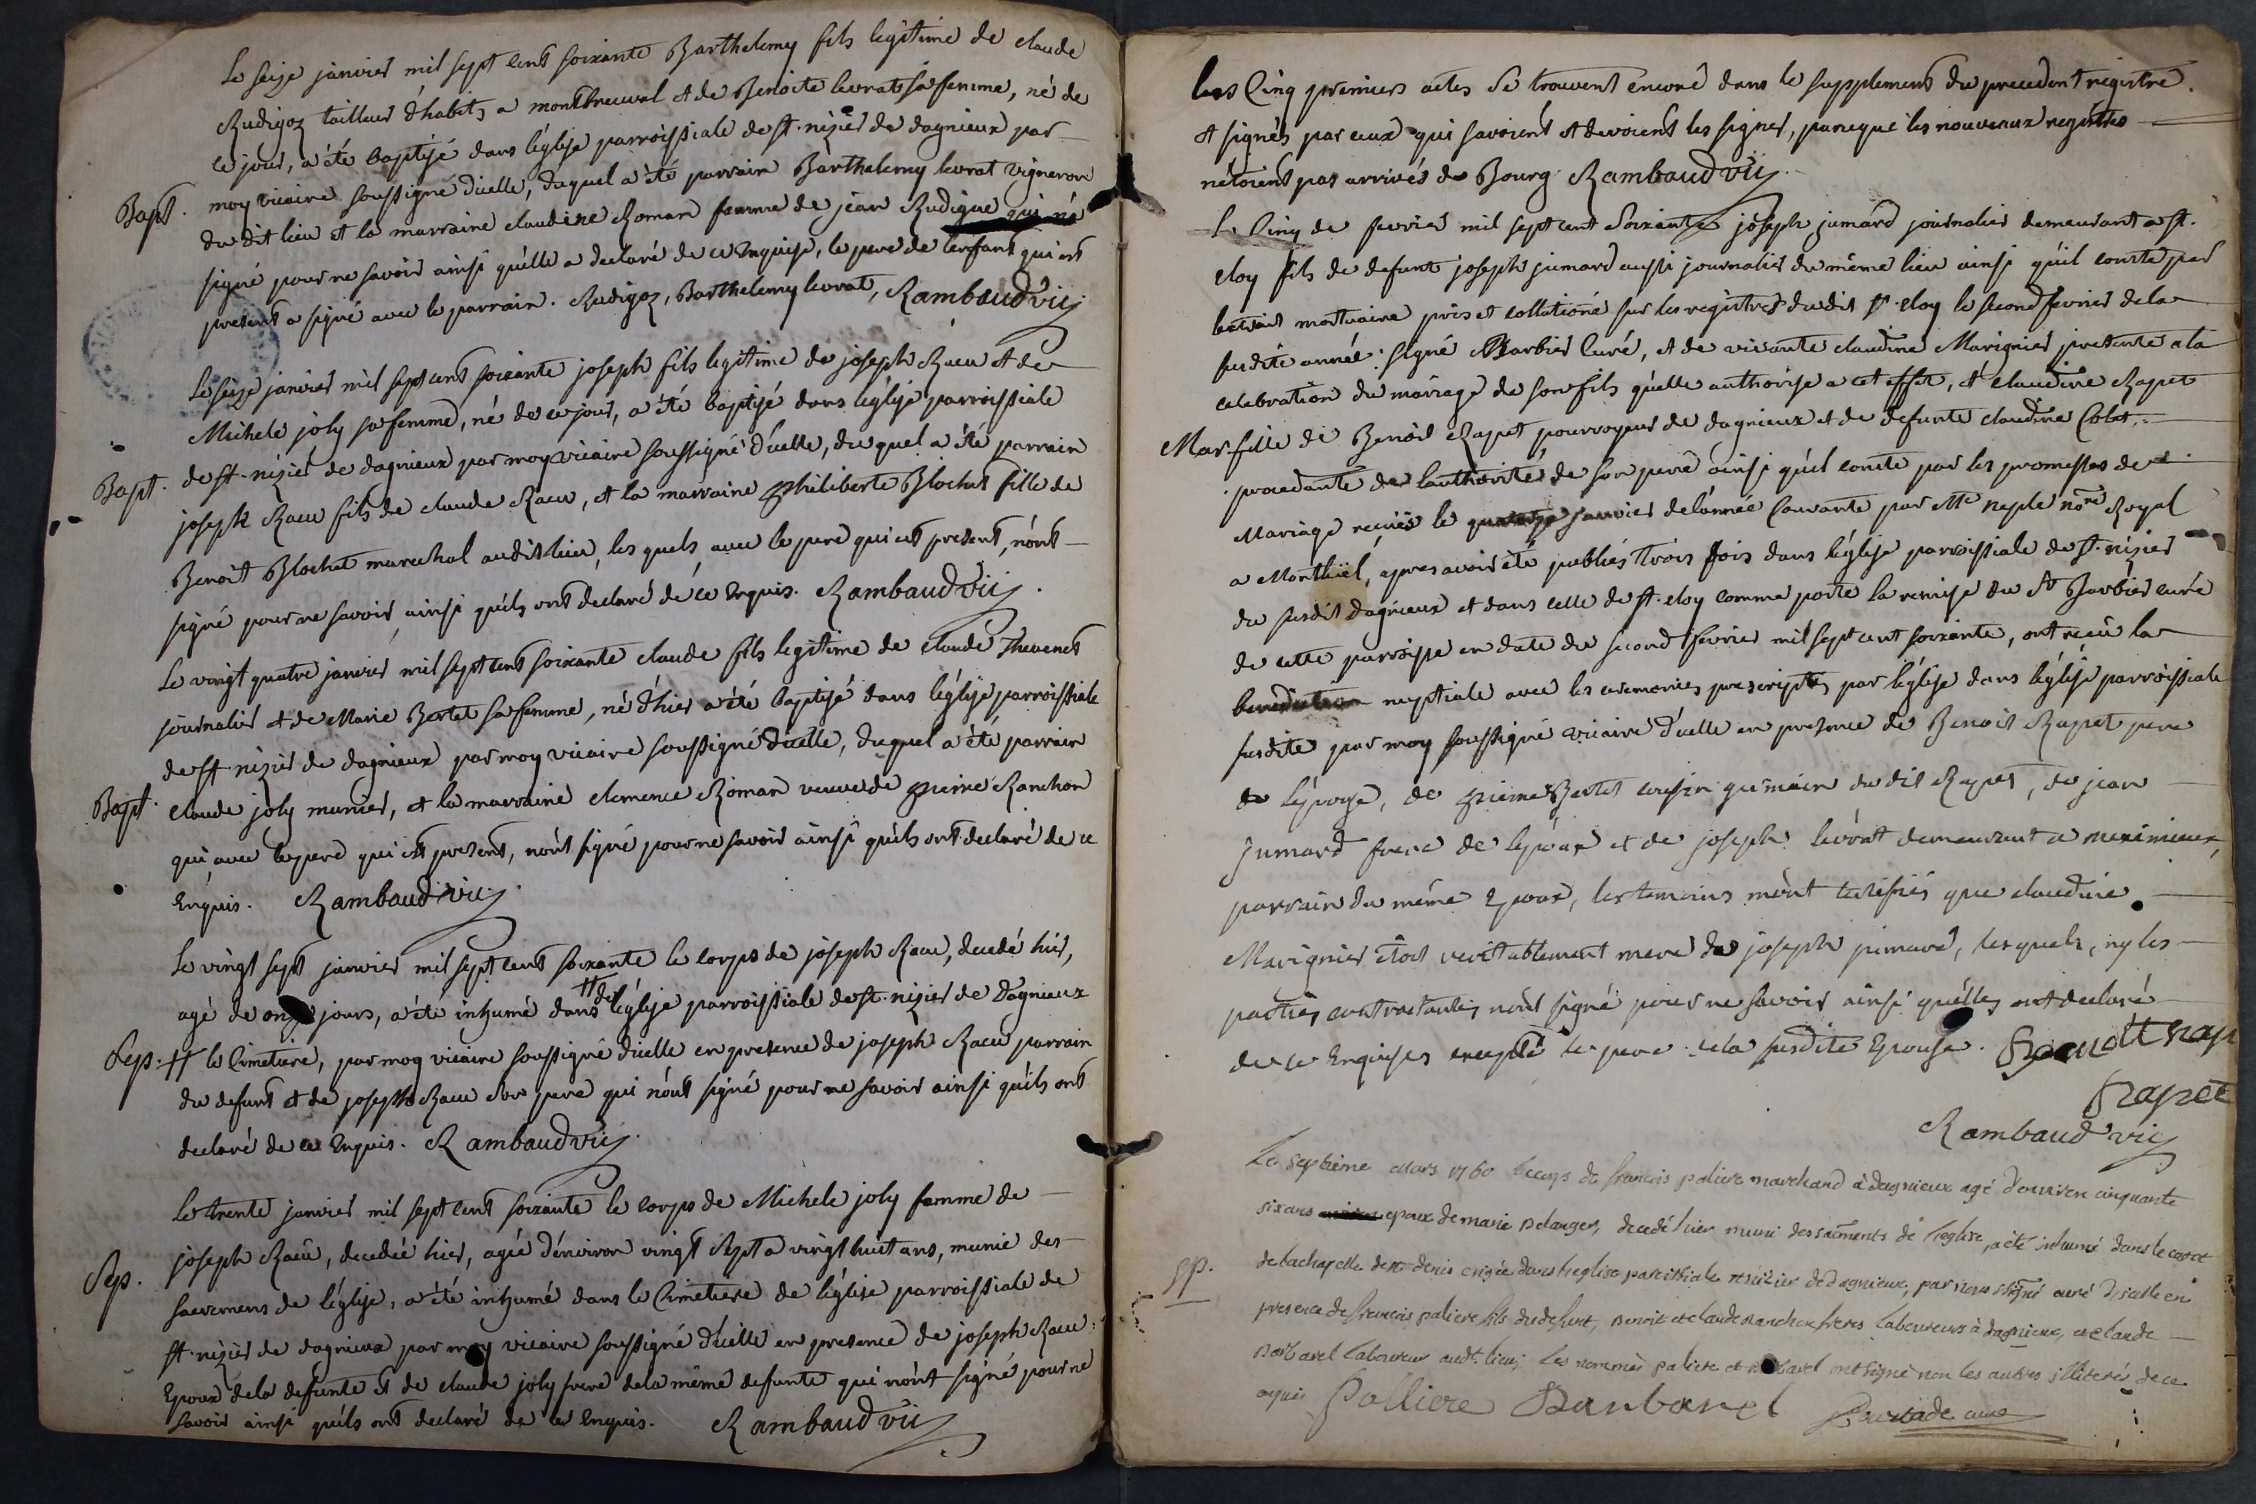 Le seize janvier mil sept cent soixante Barthelemy fils legitime de claude
Rudigoz tailleur d'habits a montbreval et de Benoite levrat sa femme, né de
ce jour, a été baptisé dans l'église parroissiale de st. nizier de dagnieux par
Bapt. moy vicaire soussigné d'icelle, duquel a été parrain Barthelemy levrat vigneron
du dit lieu et la marraine claudine Roman femme de jean Rudigue
signé pour ne savoir ainsi qu'elle a declaré de ce enquise, le pere de lenfant qui est
present a signé avec le parrain. Rudigoz, Barthelemy levrat, Rambaud vic
Le seize janvier mil sept cent soixante joseph fils legitime de joseph Racu et de
Michele joly sa femme, né de ce jour, a été baptisé dans l'église parroissiale
Bapt. de st. nizier de dagnieux par moy vicaire soussigné d'icelle, du quel a été parrain
joseph Racu fils de claude Racu, et la marraine philiberte Blochet fille de
Benoit Blochet marechal audit lieu, les quels avec le pere qui est present, n'ont
signé pour ne savoir, ainsi qu'ils ont declaré de ce enquis. Rambaud vic.
Le vingt quatre janvier mil sept cent soixante claude fils legitime de claude Thevenet
journalier et de Marie Bertet sa femme, né d'hier a été baptisé dans l'église parroissiale
de st. nizier de dagnieux par moy vicaire soussigné d'icelle, duquel a été parrain
Bapt. claude joly munier, et la marraine clemence Roman veuve de pierre Ranchon
qui, avec le pere qui est present, n'ont signé pour ne savoir ainsi qu'ils ont declaré de ce
enquis. Rambaud vic.
Le vingt sept janvier mil sept cent soixante le corps de joseph Racu, decedé hier,
agé de onze jours, a été inhumé dans # de l'église parroissiale de st. nizier de Dagnieux
Sep. # le Cimetiere, par moy vicaire soussigné d'icelle en presence de joseph Racu parrain
du defunt et de joseph Racu son pere qui n'ont signé pour ne savoir ainsi qu'ils ont
declaré de ce enquis. Rambaud vic.
Le trente janvier mil sept cent soixante le corps de Michele joly femme de
joseph Racu, decedée hier, agée d'environ vingt sept a vingt huit ans, munie des
Sep. sacremens de l'église, a été inhumé dans le Cimetiere de l'église parroissiale de
st. nizier de dagnieux par moy vicaire soussigné d'icelle en presence de joseph Racu
Epoux de la defunte et de claude joly frere de la même defunte qui n'ont signé pour ne
savoir ainsi qu'ils ont declaré de ce enquis. Rambaud vic
les Cinq premiers actes se trouvent encore dans le supplement du precedent registre.
et signés par ceux qui savoient et devoient les signer, parceque les nouveaux registres
n'étoient pas arrivés de Bourg Rambaud vic.
Le Cinq de fevrier mil sept cent Soixante joseph jumard journalier demeurant a st.
eloy fils de defunt joseph jumard aussi journalier du même lieu ainsi qu'il conste par
l'extrait mortuaire pris et collationé sur les registres dudit st. eloy le second fevrier de la
susdite année: signé Barbier Curé, et de vivante claudine Marignier presente a la
celebration du mariage de son fils qu'elle authorise a cet effet, et claudine Rapet
Mar. fille de Benoit Rapet pourvoyeur de dagnieux et de defunte claudine Colet
procedante de l'authorité de son pere ainsi qu'il conste par les promesses de
Mariage recües le janvier de l'année Courante par Me neple nore Royal
a Montluel, apres avoir été publiés Trois fois dans l'église parroissiale de st. nizier
du susdit dagnieux et dans celle de st. eloy comme porte la remise du Sr Barbier curé
de cette parroisse en date du second fevrier mil sept cent soixante, ont recû la
benediction nuptiale avec les ceremonies prescriptes par l'église dans l'église parroissiale
susdite par moy soussigné vicaire d'icelle en presence de Benoit Rapet pere
de l'épouse, de pierre Bertet cousin germain du dit Rapet, de jean
Jumard frere de l'époux et de joseph levrat demeurant a meximieux,
parrain du même Epoux, les temoins m'ont certifiés que claudine
Marignier étoit veritablement mere de joseph jumard, les quels, ny les
parties contractantes n'ont signé pour ne savoir ainsi qu'elles ont declaré
de ce Enquises excepté le pere de la susdite Epouse. Benoitt rap
Rapet
Rambaud vic
Le septieme Mars 1760 le corps de francois paliere marchand à dagnieux agé d'environ cinquante
six ans epoux de marie Belanger, decedé hier muni des sacrements de l'eglise, a été inhumé dans le caveau
sep. de la chapelle de st denis erigée dans l'eglise paroissiale st nizier de dagnieux, par nous signé curé d'icelle en
presence de francois paliere fils du defunt, Benoit et claude Ranchon freres laboureurs à dagnieux, et claude
Barbarel laboureur audt. lieu; les nommés paliere et Barbarel ont signé non les autres illiterés de ce
enquis Palliere Barbarel curé